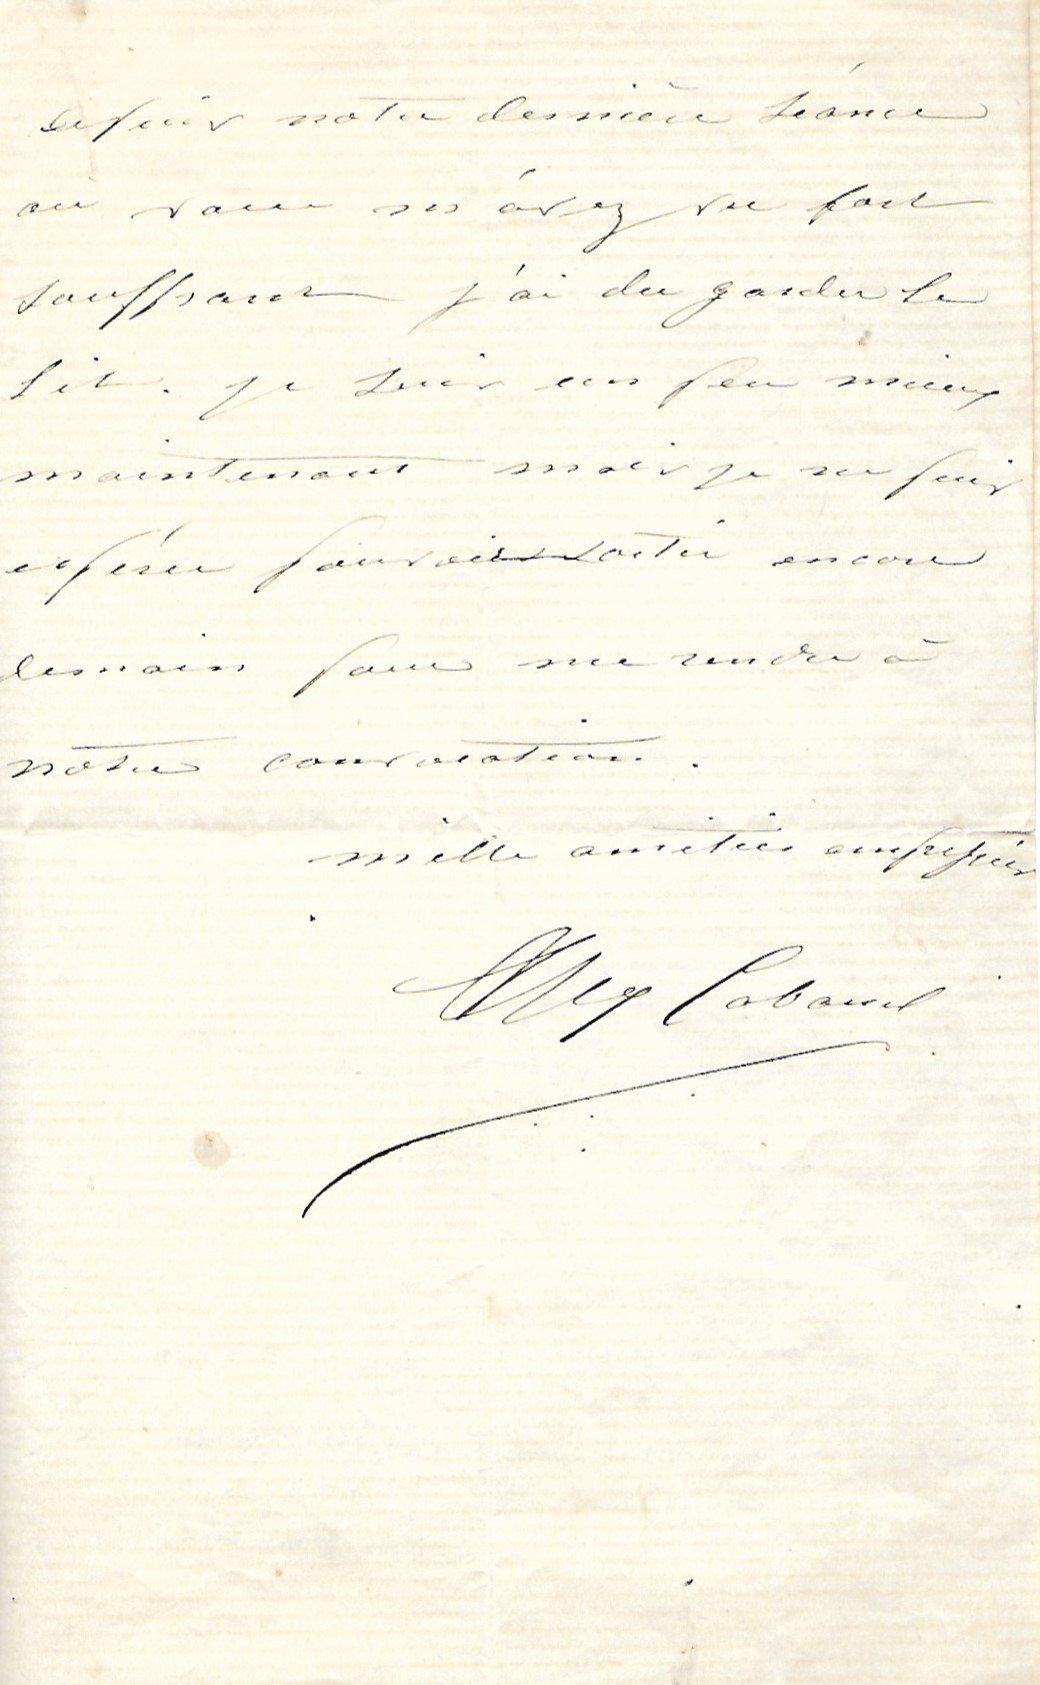 depuis notre dernière séance
où vous m'avez vu fort
souffrant j'ai du garder le
lit. je suis un peu mieux
maintenant mais je ne puis
espérer pouvoir sortir encore
demain pour me rendre à
notre convocation.
mille amitiés empressées
Alex Cabanel